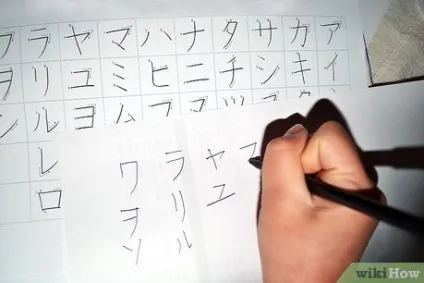 アイ
カキ
サシ
タチツ
ナニ
ハヒフ
マミム
ヤユヨ
ラリルレロ
ワヲン
ヤユ
ラリル
ワヲン
wikiHow